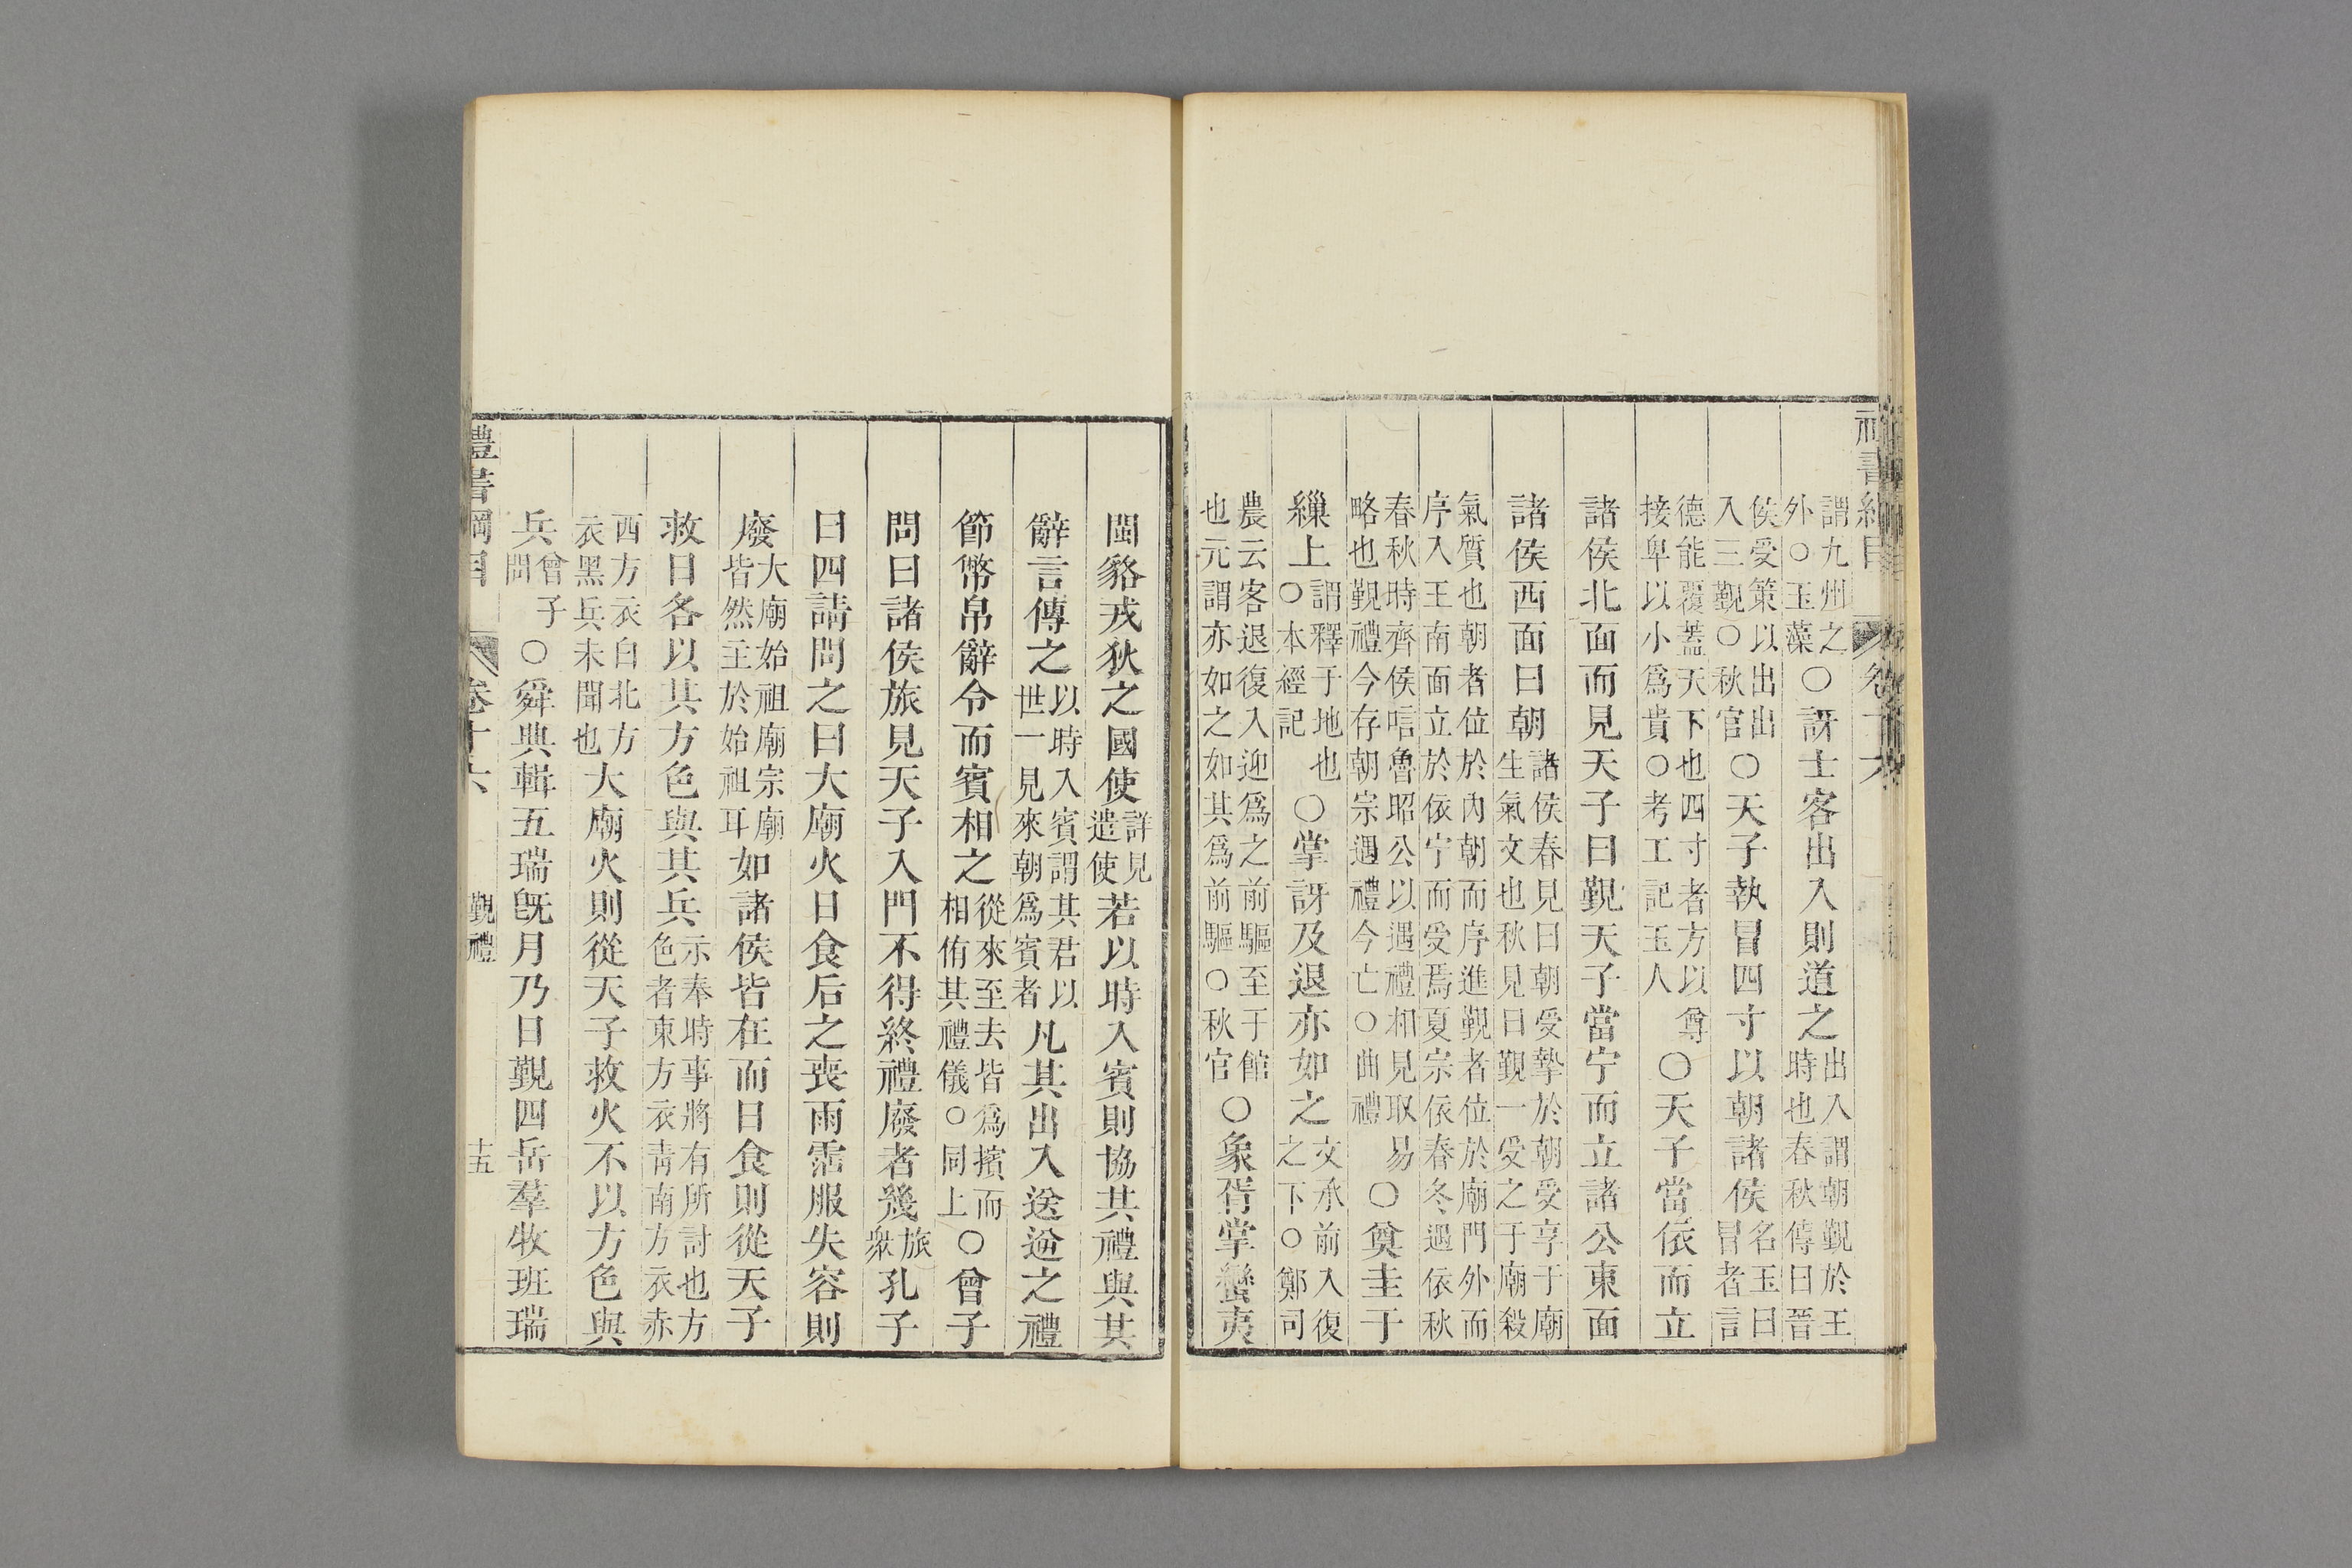 禮書綱目 卷十六
謂九州之
外○玉藻
○訝士客出入則道之
出入謂朝覲於王
時也春秋傳曰晉
侯受策以出出
入三覲○秋官
○天子執冒四寸以朝諸侯
名玉曰
冒者言
德能覆蓋天下也四寸者方以尊
接卑以小爲貴○考工記玉人
○天子當依而立
諸侯北面而見天子曰覲天子當宁而立諸公東面
諸侯西面曰朝
諸侯春見曰朝受摯於朝受享于廟
生氣文也秋見曰覲一受之于廟殺
氣質也朝者位於內朝而序進覲者位於廟門外而
序入王南面立於依宁而受焉夏宗依春冬遇依秋
春秋時齊侯唁魯昭公以遇禮相見取易
略也覲禮今存朝宗遇禮今亡○曲禮
○奠圭于
繅上
謂釋于地也
○本經記
○掌訝及退亦如之
文承前入復
之下○鄭司
農云客退復入迎爲之前驅至于館
也元謂亦如之如其爲前驅○秋官
○象胥掌蠻夷
閩貉戎狄之國使
詳見
遣使
若以時入賓則協其禮與其
辭言傳之
以時入賓謂其君以
世一見來朝爲賓者
凡其出入送逆之禮
節幣帛辭令而賓相之
從來至去皆爲擯而
相侑其禮儀○同上
○曾子
問曰諸侯旅見天子入門不得終禮廢者幾
旅
衆
孔子
曰四請問之曰大廟火日食后之喪雨霑服失容則
廢
大廟始祖廟宗廟
皆然主於始祖耳
如諸侯皆在而日食則從天子
救日各以其方色與其兵
示奉時事將有所討也方
色者東方衣青南方衣赤
西方衣白北方
衣黑兵未聞也
大廟火則從天子救火不以方色與
兵
曾子
問
○舜典輯五瑞旣月乃日覲四岳羣牧班瑞
禮書綱目 卷十六 覲禮 十五